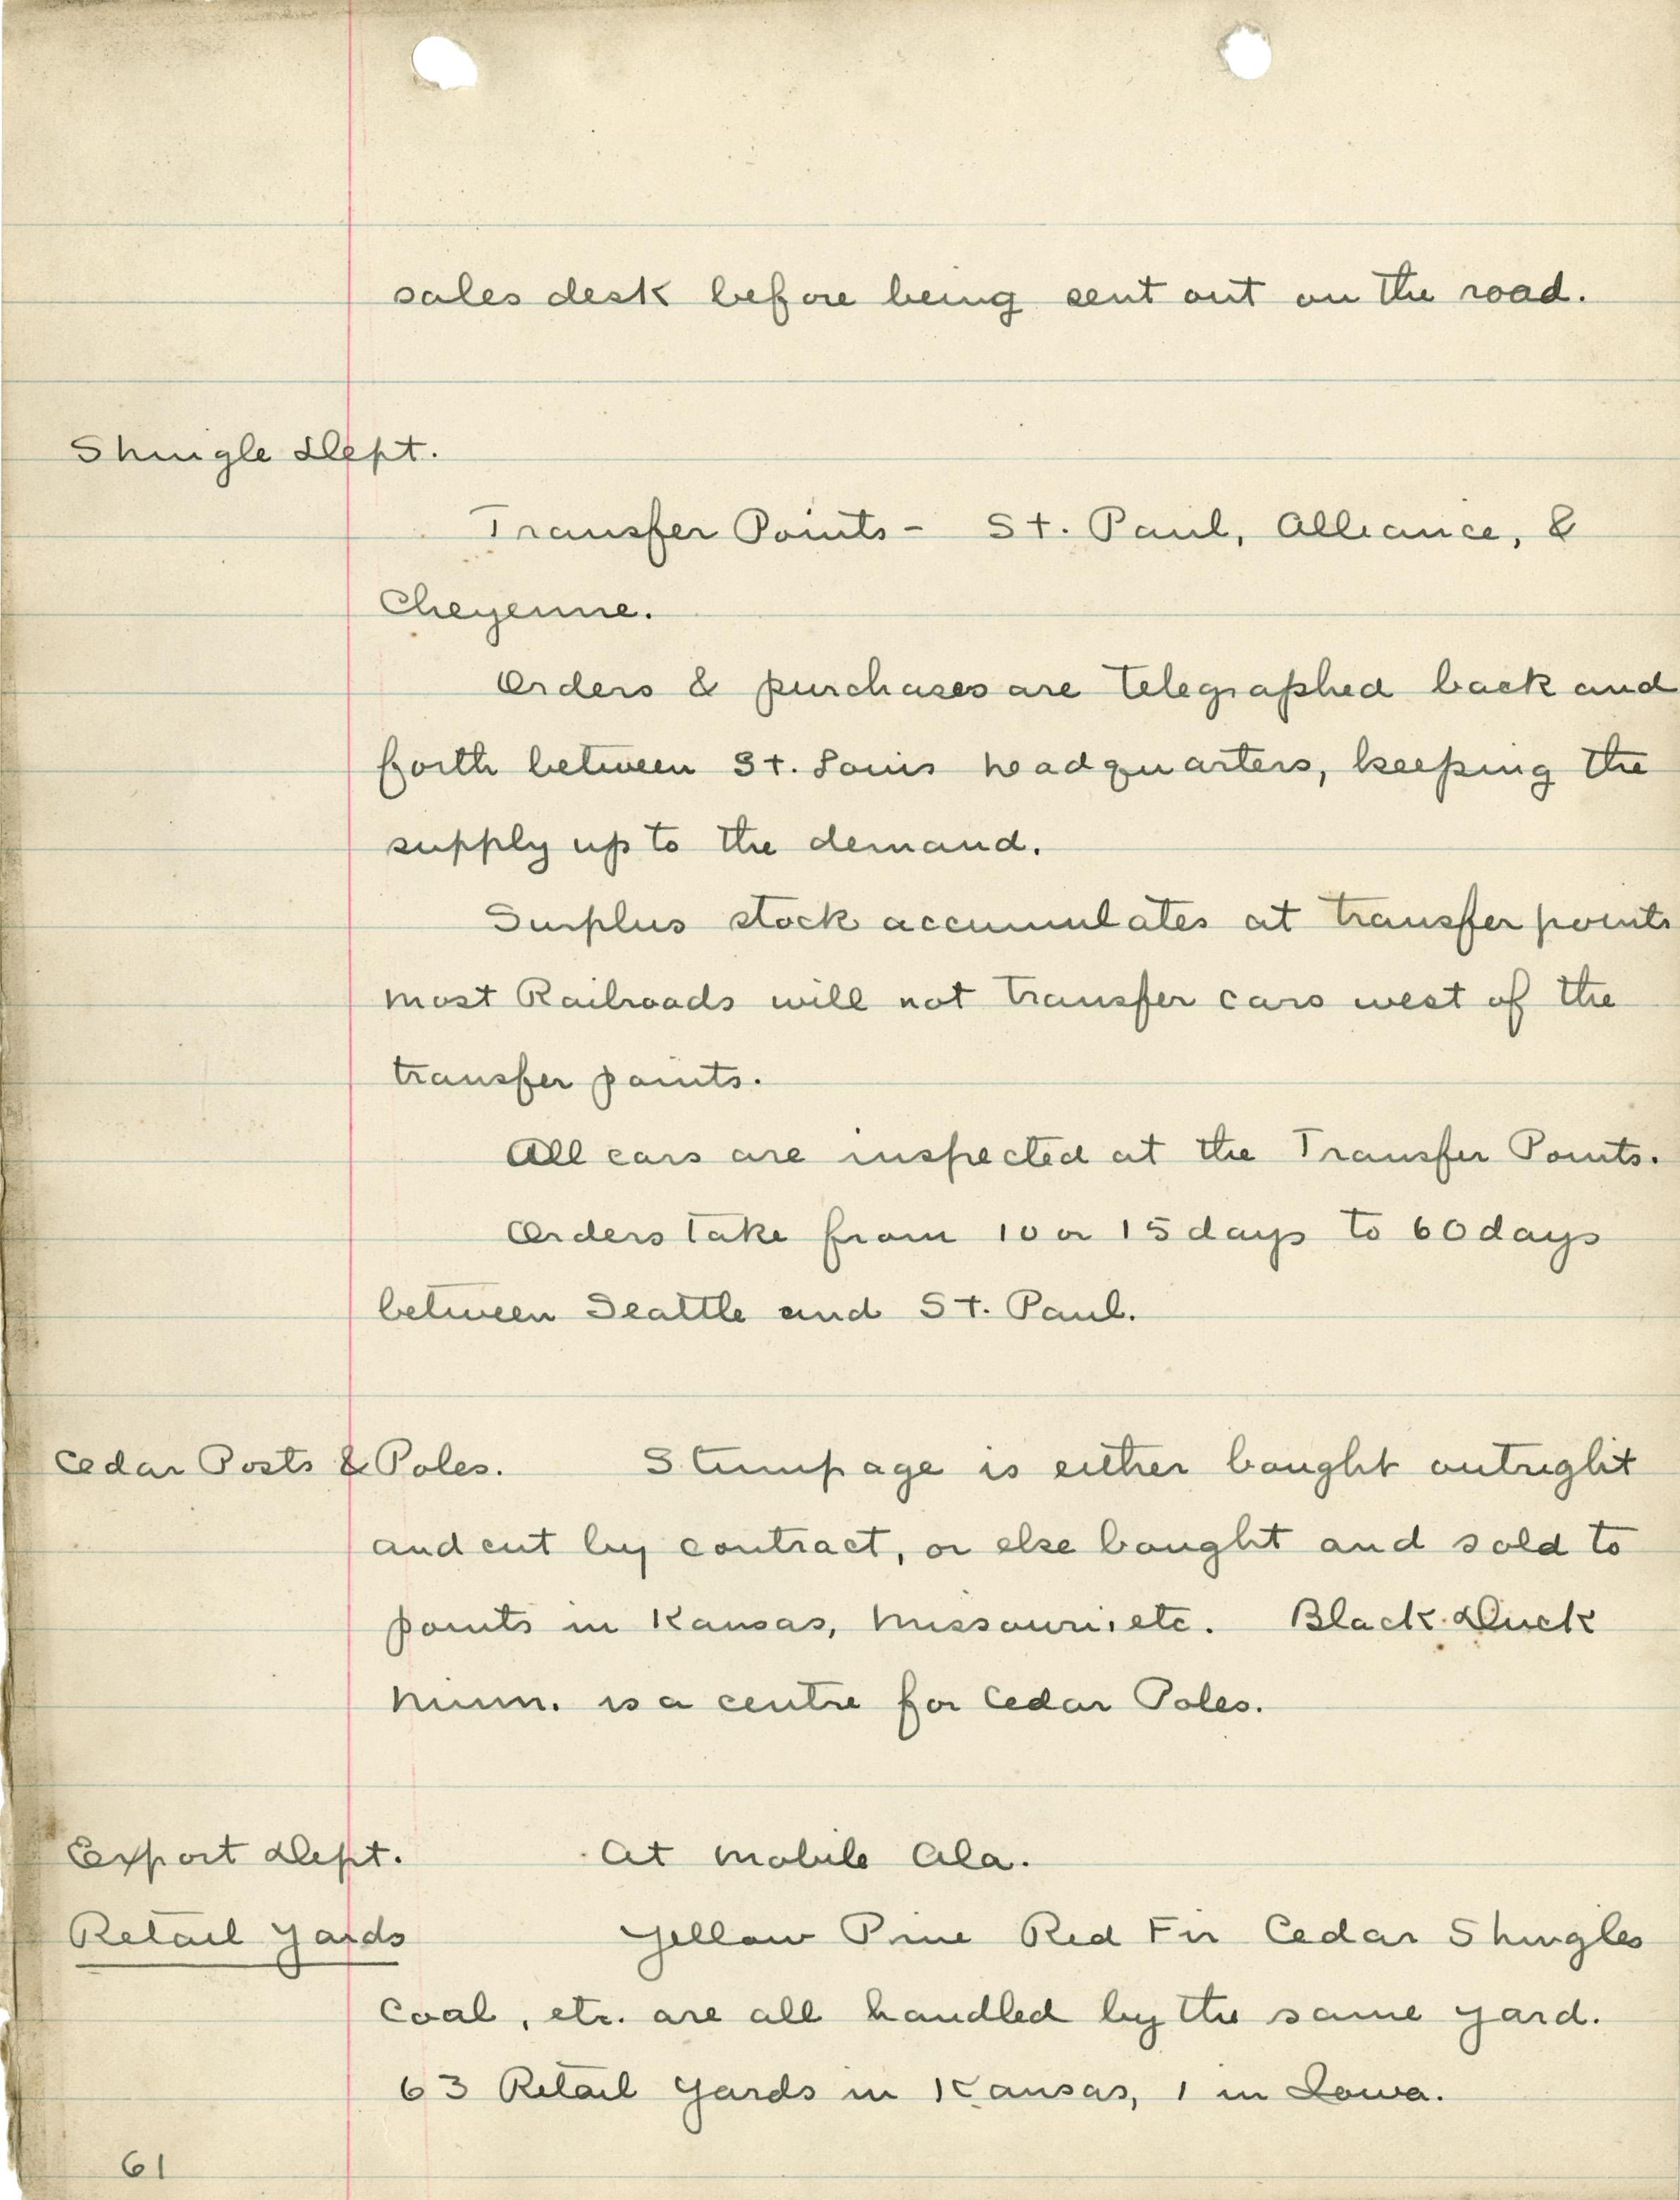 sales desk before being sent out on the road.
Shingle Dept.
Transfer Points - St. Paul, Alliance, &
Cheyenne.
Orders & purchases are telegraphed back and
forth between St. Louis headquarters, keeping the
supply up to the demand.
Surplus stock accumulates at transfer points
most Railroads will not transfer cars west of the
transfer points.
All cars are inspected at the Transfer Points.
Orders take from 10 or 15 days to 60 days
between Seattle and St. Paul.
Cedar Posts & Poles. Stumpage is either bought outright
and cut by contract, or else bought and sold to
points in Kansas, Missouri, etc. Black Duck
Minn. is a centre for Cedar Poles.
Export Dept. At Mobile Ala.
Retail Yards Yellow Pine Red Fir Cedar Shingles
Coal, etc. are all handled by the same yard.
63 Retail Yards in Kansas, 1 in Iowa.
61